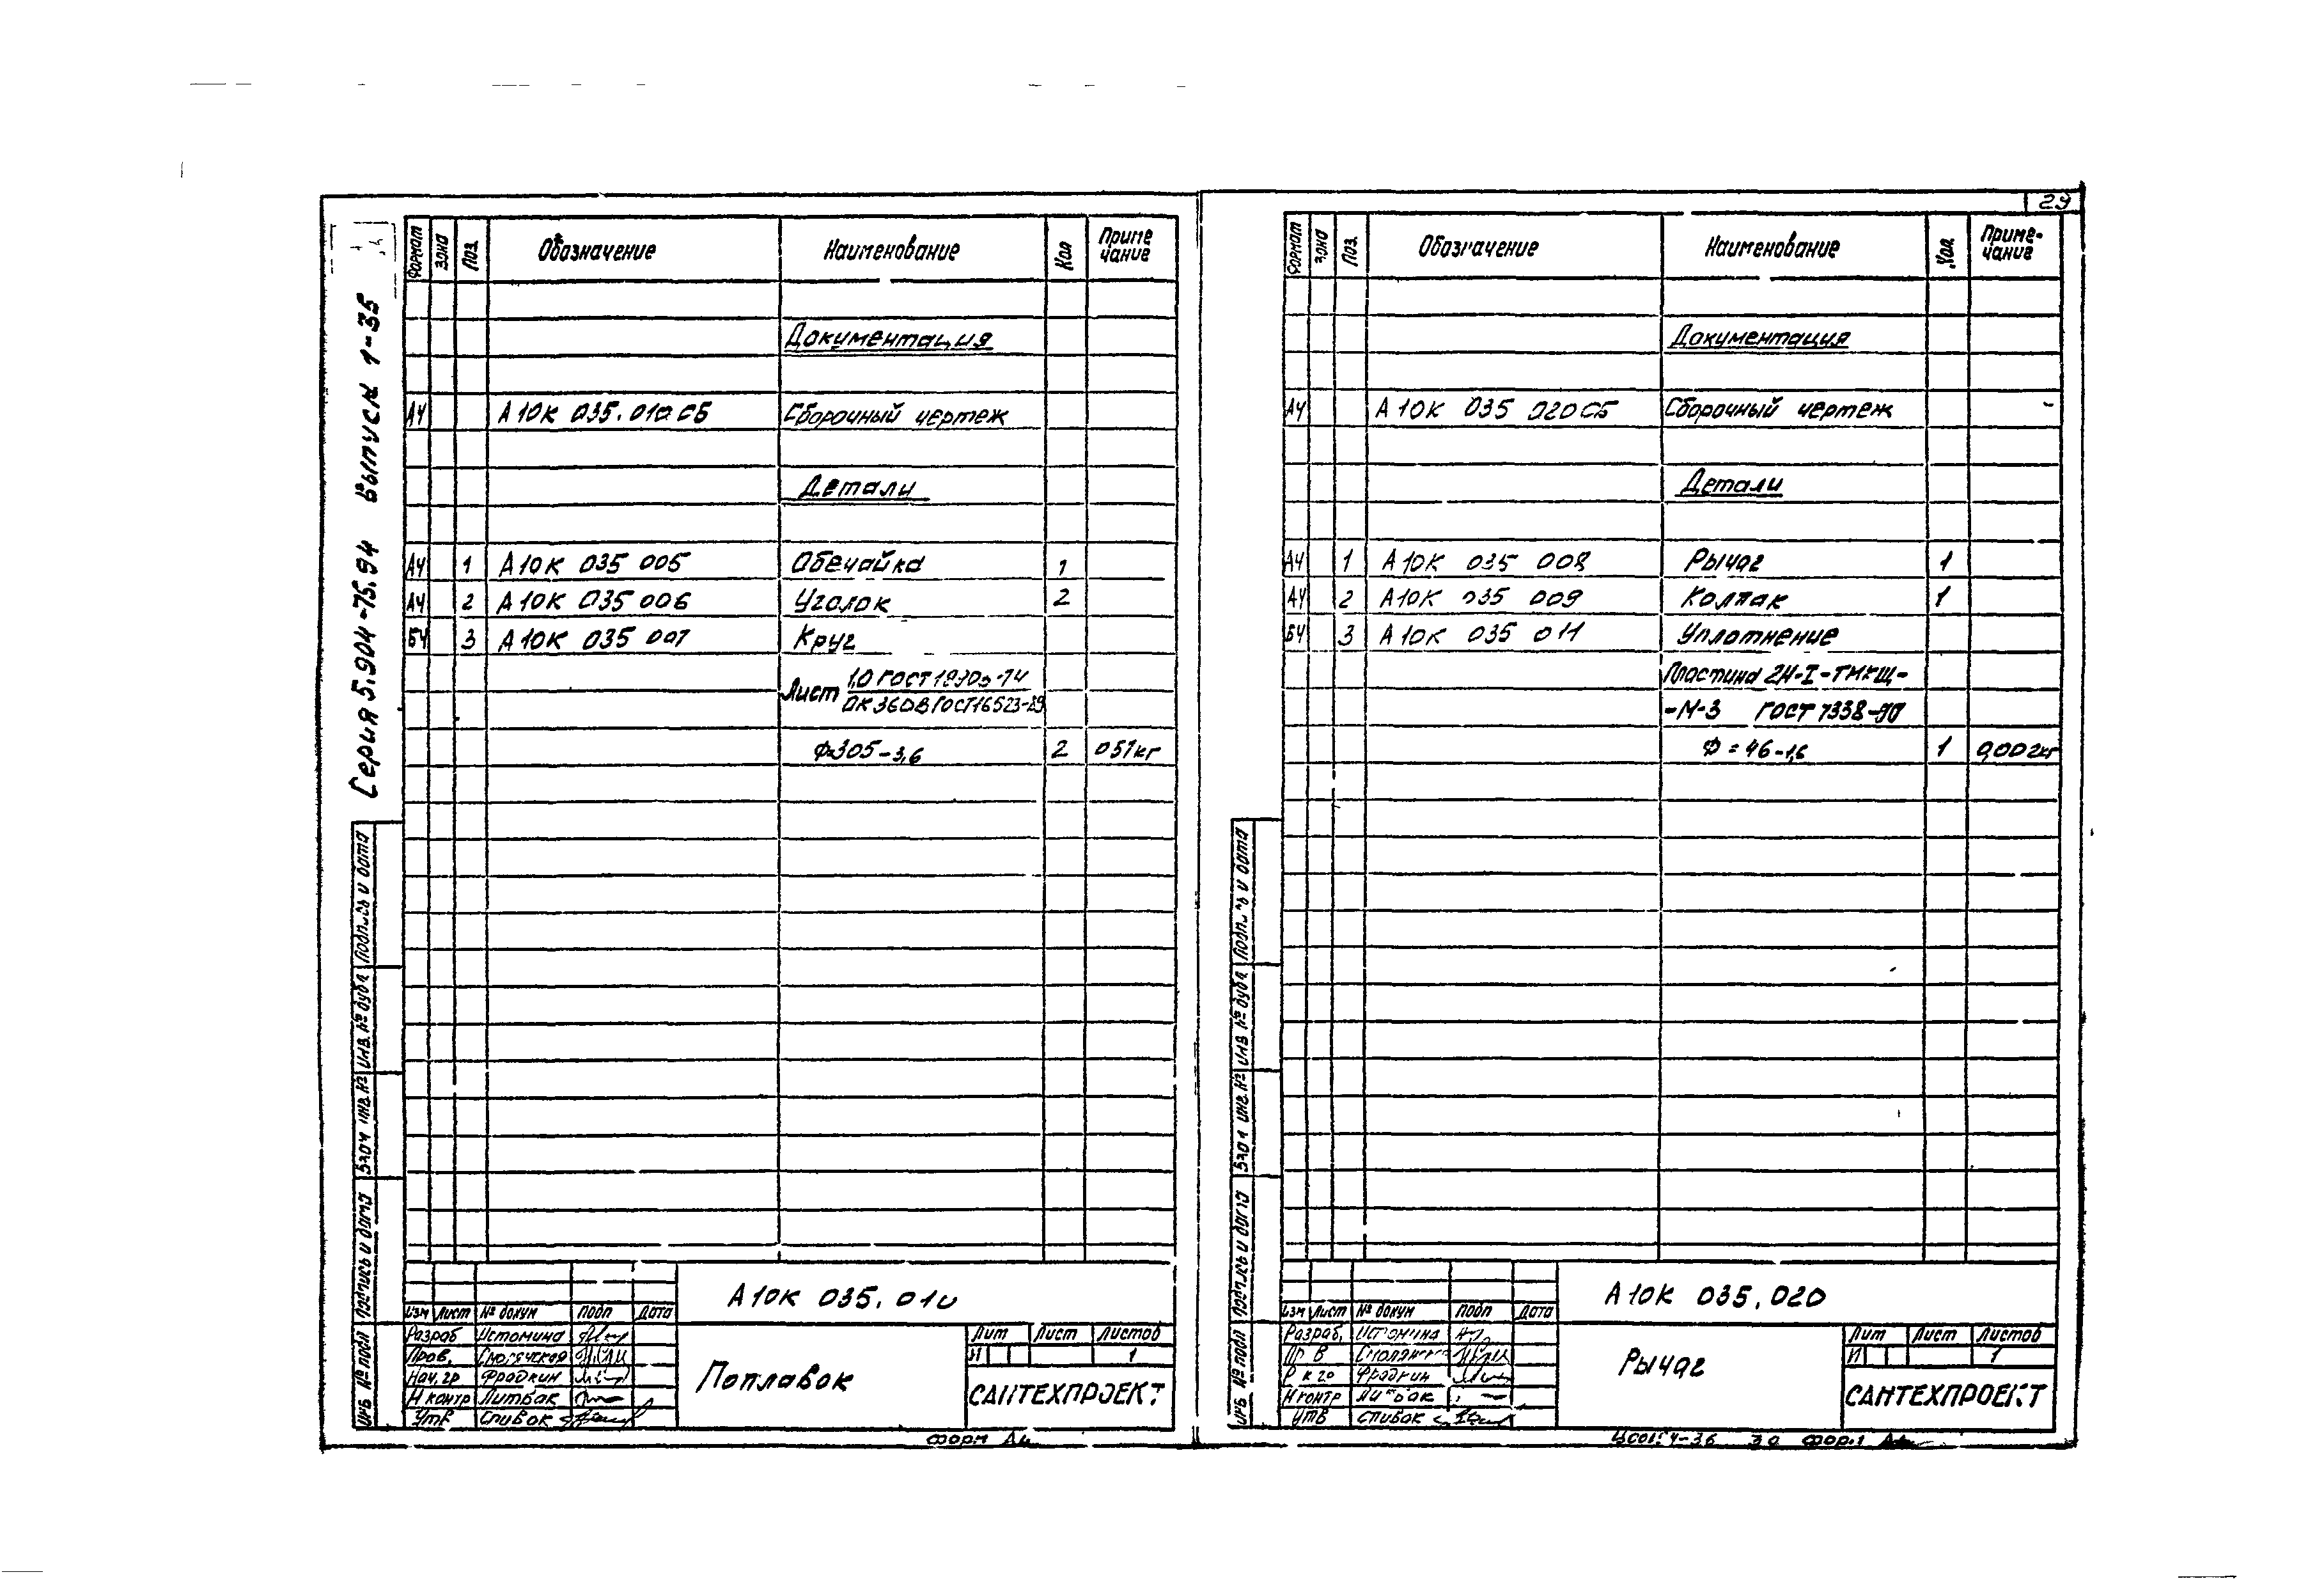 29
Серия 5.904-75.94 Выпуск 1-35
Формат Зона Поз. Обозначение Наименование Кол Приме чание
Документация
А4 А10К 035.010СБ Сборочный чертеж
Детали
А4 1 А10К 035 005 Обечайка 1
А4 2 А10К 035 006 Уголок 2
БЧ 3 А10К 035 007 Круг
Лист 1,0 ГОСТ 19903-74
ОК 360В ГОСТ 16523-89
Ф305-3,6 2 0 51кг
Подпись и дата
Инв. № дубл
Взам инв. №
Подпись и дата
Инв № подл
А10К 035.010
Изм Лист № докум Подп Дата
Разраб Истомина
Пров. Смолянская
Нач. гр Фрадкин
Н контр Литвак
Утв Спивак
Поплавок
Лит Лист Листов
И 1
САНТЕХПРОЕКТ
форм А4
Формат Зона Поз. Обозначение Наименование Кол. Приме- чание
Документация
А4 А10К 035 020СБ Сборочный чертеж
Детали
А4 1 А10К 035 008 Рычаг 1
А4 2 А10К 035 009 Колпак 1
БЧ 3 А10К 035 011 Уплотнение
Пластина 2Н-I-ТМКЩ-
-М-3 ГОСТ 7338-90
Ф = 46-1,6 1 0,002кг
Подпись и дата
Инв № дубл
Взам инв. №
Подпись и дата
Инв № подл
А10К 035.020
Изм Лист № докум Подп Дата
Разраб. Истомина
Пров Смолянская
Фрадкин
Н контр Литвак
Утв Спивак
Рычаг
Лит Лист Листов
И 1
САНТЕХПРОЕКТ
30 форм А4